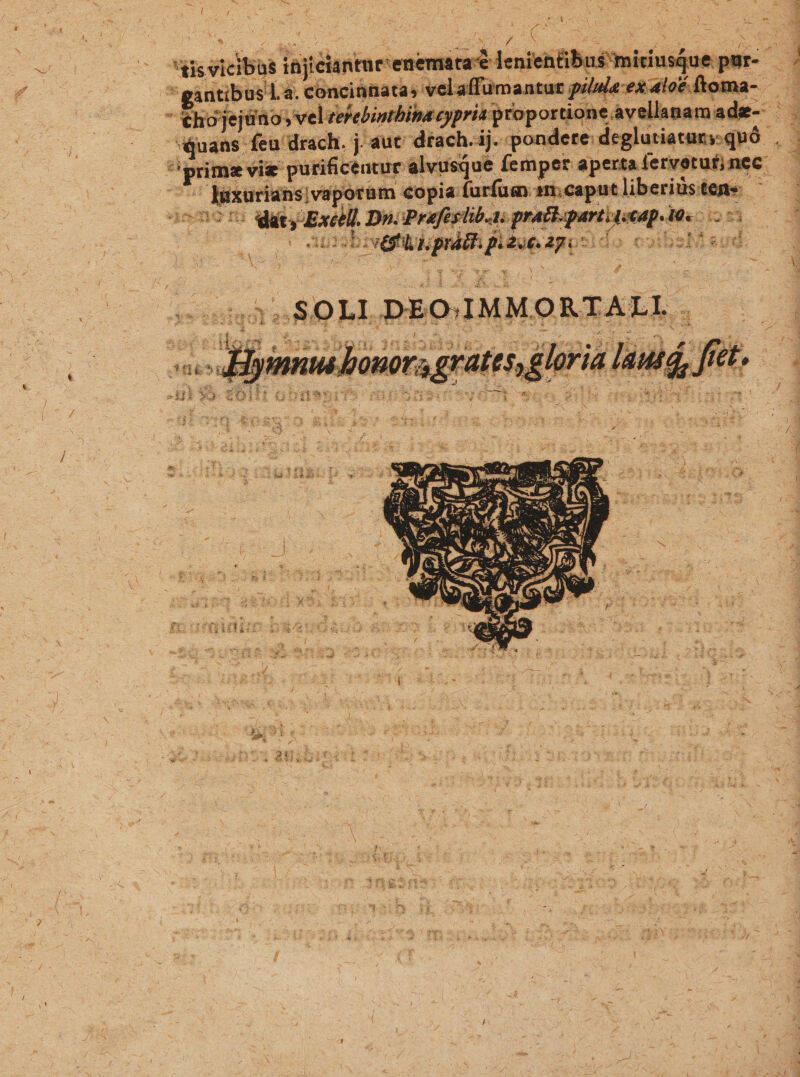 tis vicibus injiciantur enemata è lenientibus mitiusque pur-
gantibus l. a. concinnata, vel assumantur pilulæ ex aloë stoma-
cho jejuno, vel terebinthina cypria proportione avellanam adæ-
quans seu drach. j. aut drach. ij. pondere deglutiatur, quô
primæ viæ purificentur alvusque semper aperta servetur, nec
luxurians vaporum copia sursum in caput liberius ten-
dat, Excell. Dn. Præses lib. 1. pract. part. 1. cap. 10.
& l. 1. pract. p. 2. c. 27.
SOLI DEO IMMORTALI
Hymnus honor, grates, gloria lausq; fiet.